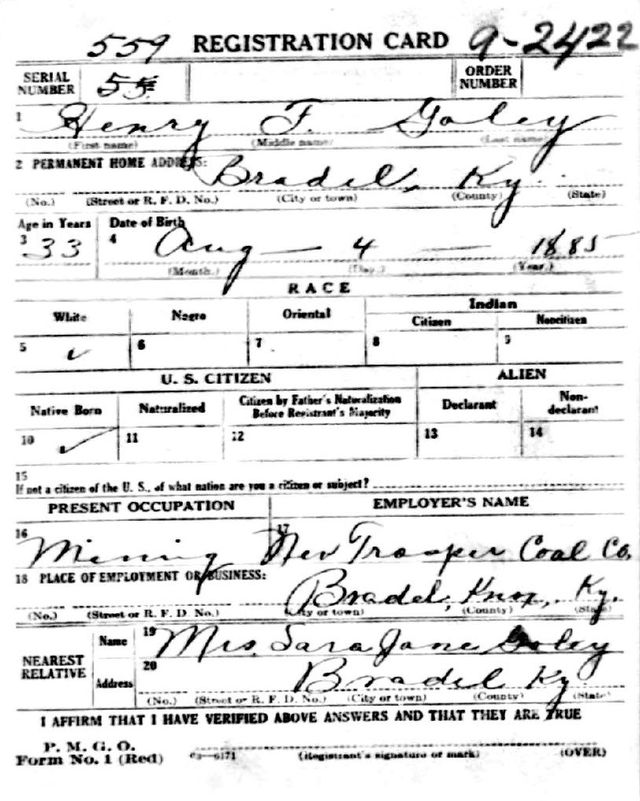 559 REGISTRATION CARD 9-2422
SERIAL NUMBER 55 ORDER NUMBER
1 Henry F. Goley
(First name) (Middle name) (Last name)
2 PERMANENT HOME ADDRESS:
Bradel, Ky.
(No.) (Street or R. F. D. No.) (City or town) (County) (State)
Age in Years Date of Birth
3 33 4 Aug — 4 — 1885
(Month.) (Day.) (Year.)
RACE
White Negro Oriental Indian
Citizen Noncitizen
5 ✓ 6 7 8 9
U. S. CITIZEN ALIEN
Native Born Naturalized Citizen by Father's Naturalization Before Registrant's Majority Declarant Non-declarant
10 ✓ 11 12 13 14
15
If not a citizen of the U. S., of what nation are you a citizen or subject?
PRESENT OCCUPATION EMPLOYER'S NAME
16 Mining 17 New Trosper Coal Co.
18 PLACE OF EMPLOYMENT OR BUSINESS:
Bradel, Knox, Ky.
(No.) (Street or R. F. D. No.) (City or town) (County) (State)
NEAREST RELATIVE Name 19 Mrs. Sara Jane Goley
Address 20 Bradel Ky
(No.) (Street or R. F. D. No.) (City or town) (County) (State)
I AFFIRM THAT I HAVE VERIFIED ABOVE ANSWERS AND THAT THEY ARE TRUE
P. M. G. O.
Form No. 1 (Red) (Registrant's signature or mark) (OVER)